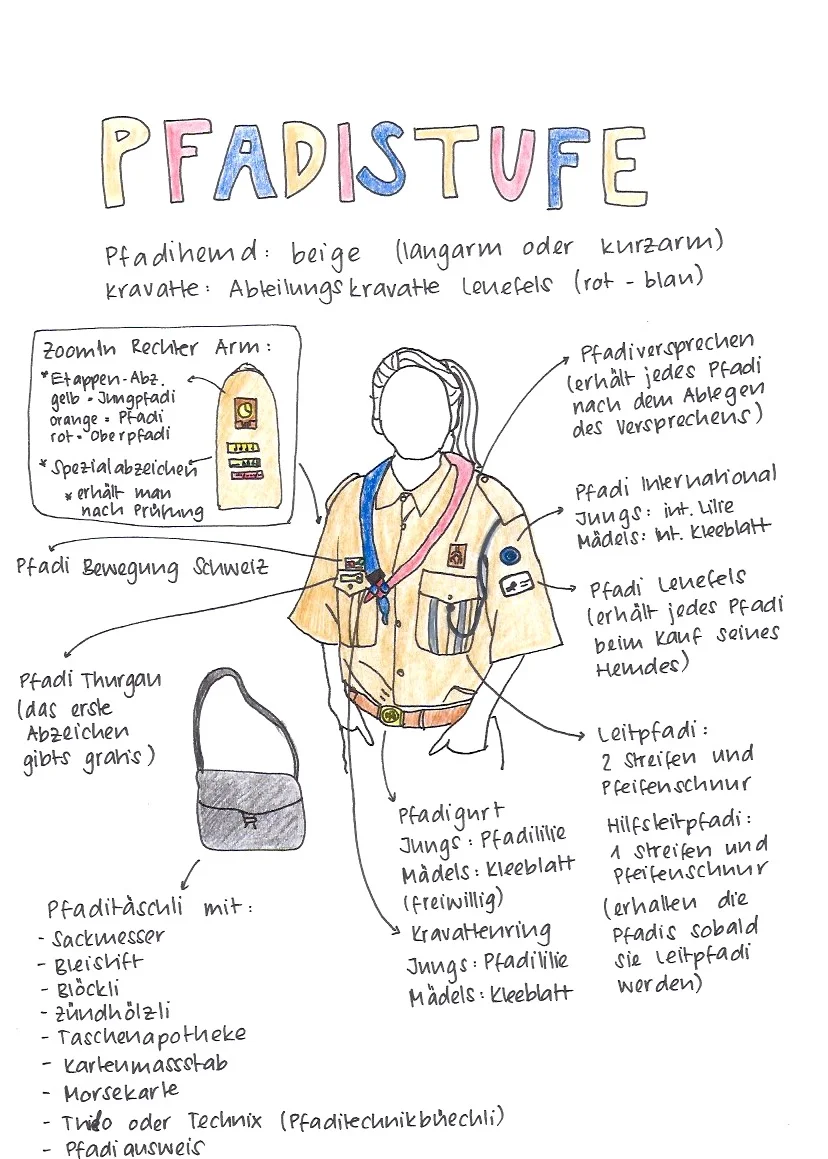 PFADISTUFE
Pfadihemd: beige (langarm oder kurzarm)
Kravatte: Abteilungskravatte Leuefels (rot - blau)
ZoomIn Rechter Arm:
*Etappen-Abz.
gelb = Jungpfadi
orange = Pfadi
rot = Oberpfadi
* Spezialabzeichen
* erhält man
nach Prüfung
Pfadiversprechen
(erhält jedes Pfadi
nach dem Ablegen
des Versprechens)
Pfadi International
Jungs: int. Lilie
Mädels: int. Kleeblatt
Pfadi Bewegung Schweiz
Pfadi Leuefels
(erhält jedes Pfadi
beim Kauf seines
Hemdes)
Pfadi Thurgau
(das erste
Abzeichen
gibts gratis)
Leitpfadi:
2 Streifen und
Pfeifenschnur
Hilfsleitpfadi:
1 Streifen und
Pfeifenschnur
(erhalten die
Pfadis sobald
sie Leitpfadi
werden)
Pfadigurt
Jungs: Pfadililie
Mädels: Kleeblatt
(freiwillig)
Kravattenring
Jungs: Pfadililie
Mädels: Kleeblatt
Pfaditäschli mit:
- Sackmesser
- Bleistift
- Blöckli
- Zündhölzli
- Taschenapotheke
- Kartenmassstab
- Morsekarte
- Thilo oder Technix (Pfaditechnikbüechli)
- Pfadiausweis